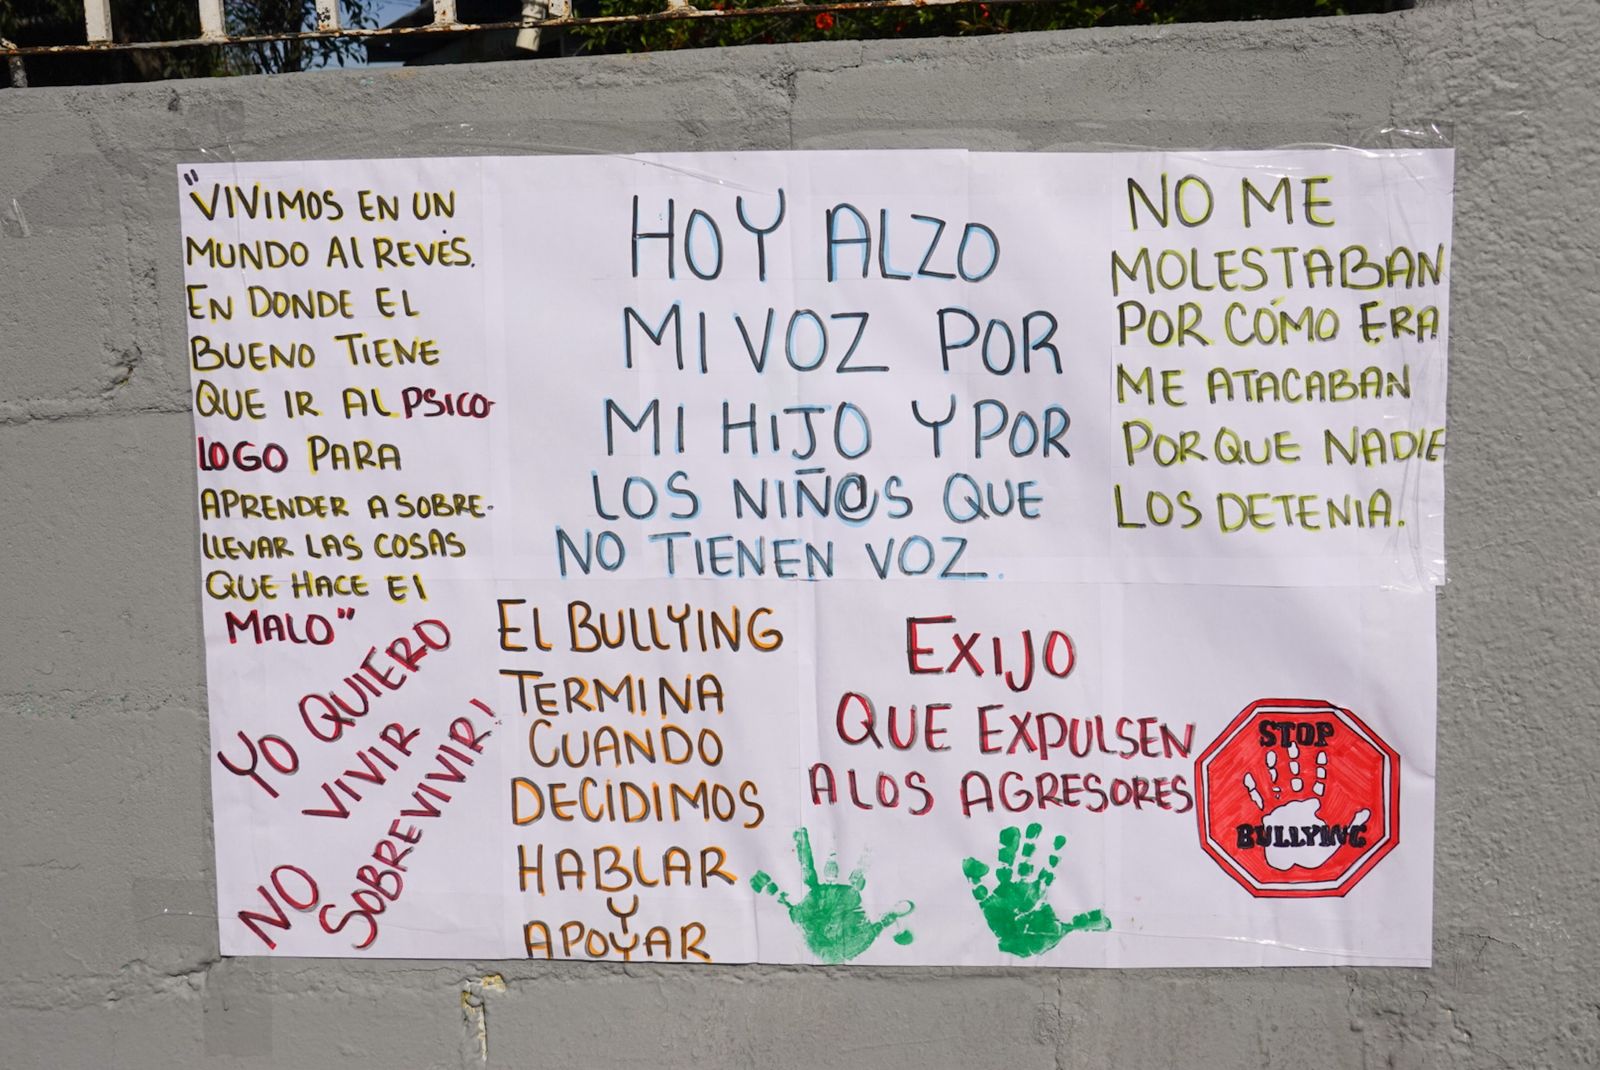 "VIVIMOS EN UN
MUNDO Al REVÉS.
EN DONDE EL
BUENO TIENE
QUE IR AL PSICO-
LOGO PARA
APRENDER A SOBRE-
LLEVAR LAS COSAS
QUE HACE El
MALO"
HOY ALZO
MI VOZ POR
MI HIJO Y POR
LOS NIÑ@S QUE
NO TIENEN VOZ.
NO ME
MOLESTABAN
POR CÓMO ERA
ME ATACABAN
PORQUE NADIE
LOS DETENIA.
YO QUIERO
VIVIR
NO SOBREVIVIR!
EL BULLYING
TERMINA
CUANDO
DECIDIMOS
HABLAR
Y
APOYAR
EXIJO
QUE EXPULSEN
A LOS AGRESORES
STOP
BULLYING